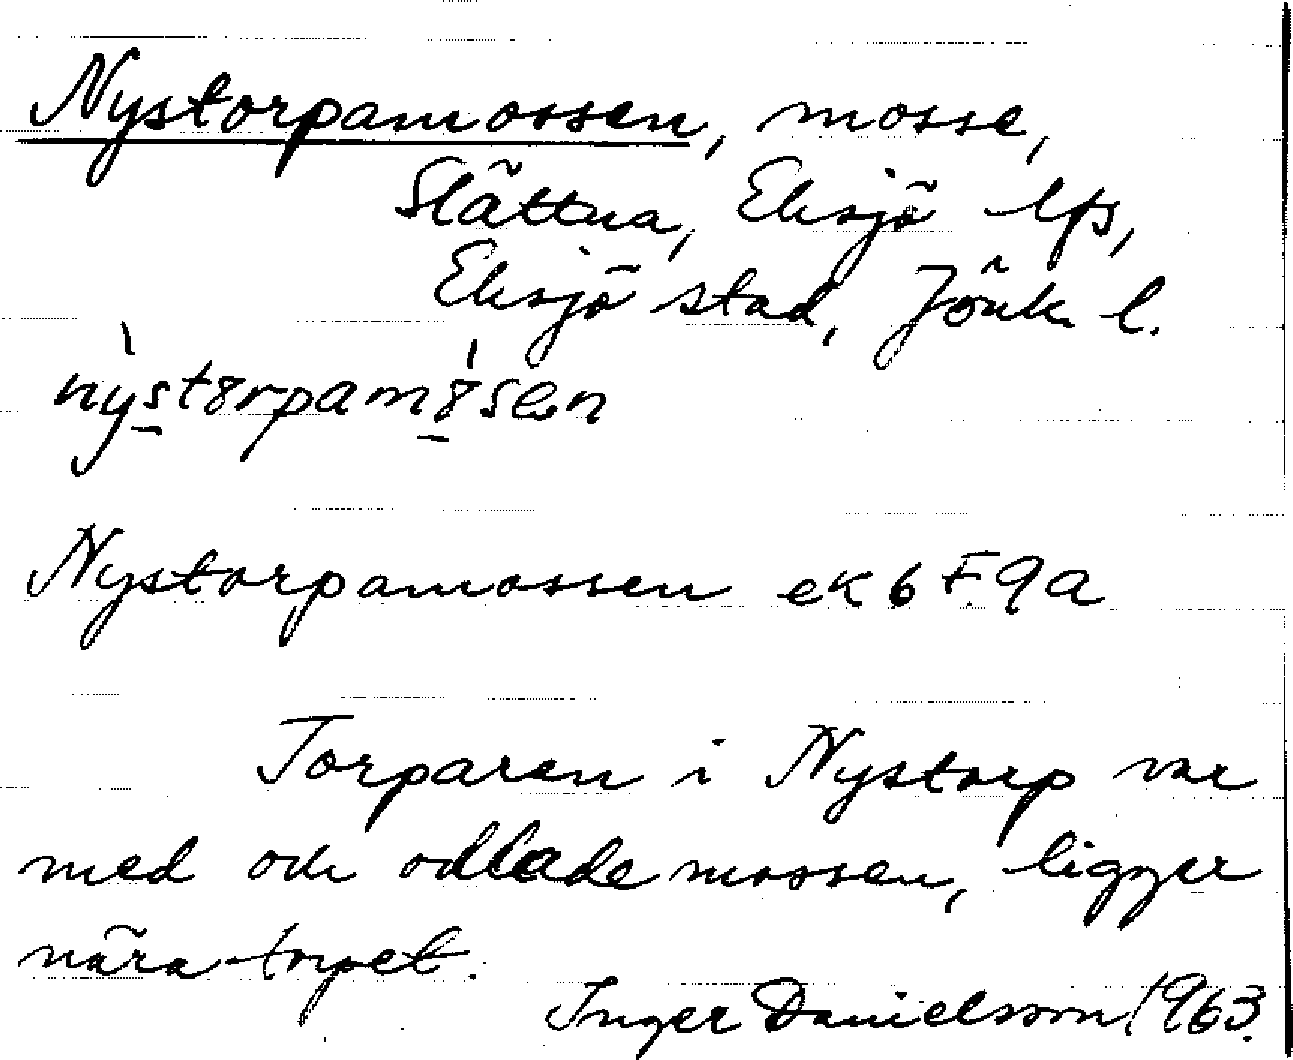 Nystorpamossen, mosse,
Slättna, Eksjö lfs,
Eksjö stad, Jönk. l.
nỳst8rpam8́sen
Nystorpamossen ek 6 F 9a
Torparen i Nystorp var
med och odlade mossen, ligger
nära torpet.
Inger Danielsson 1963.